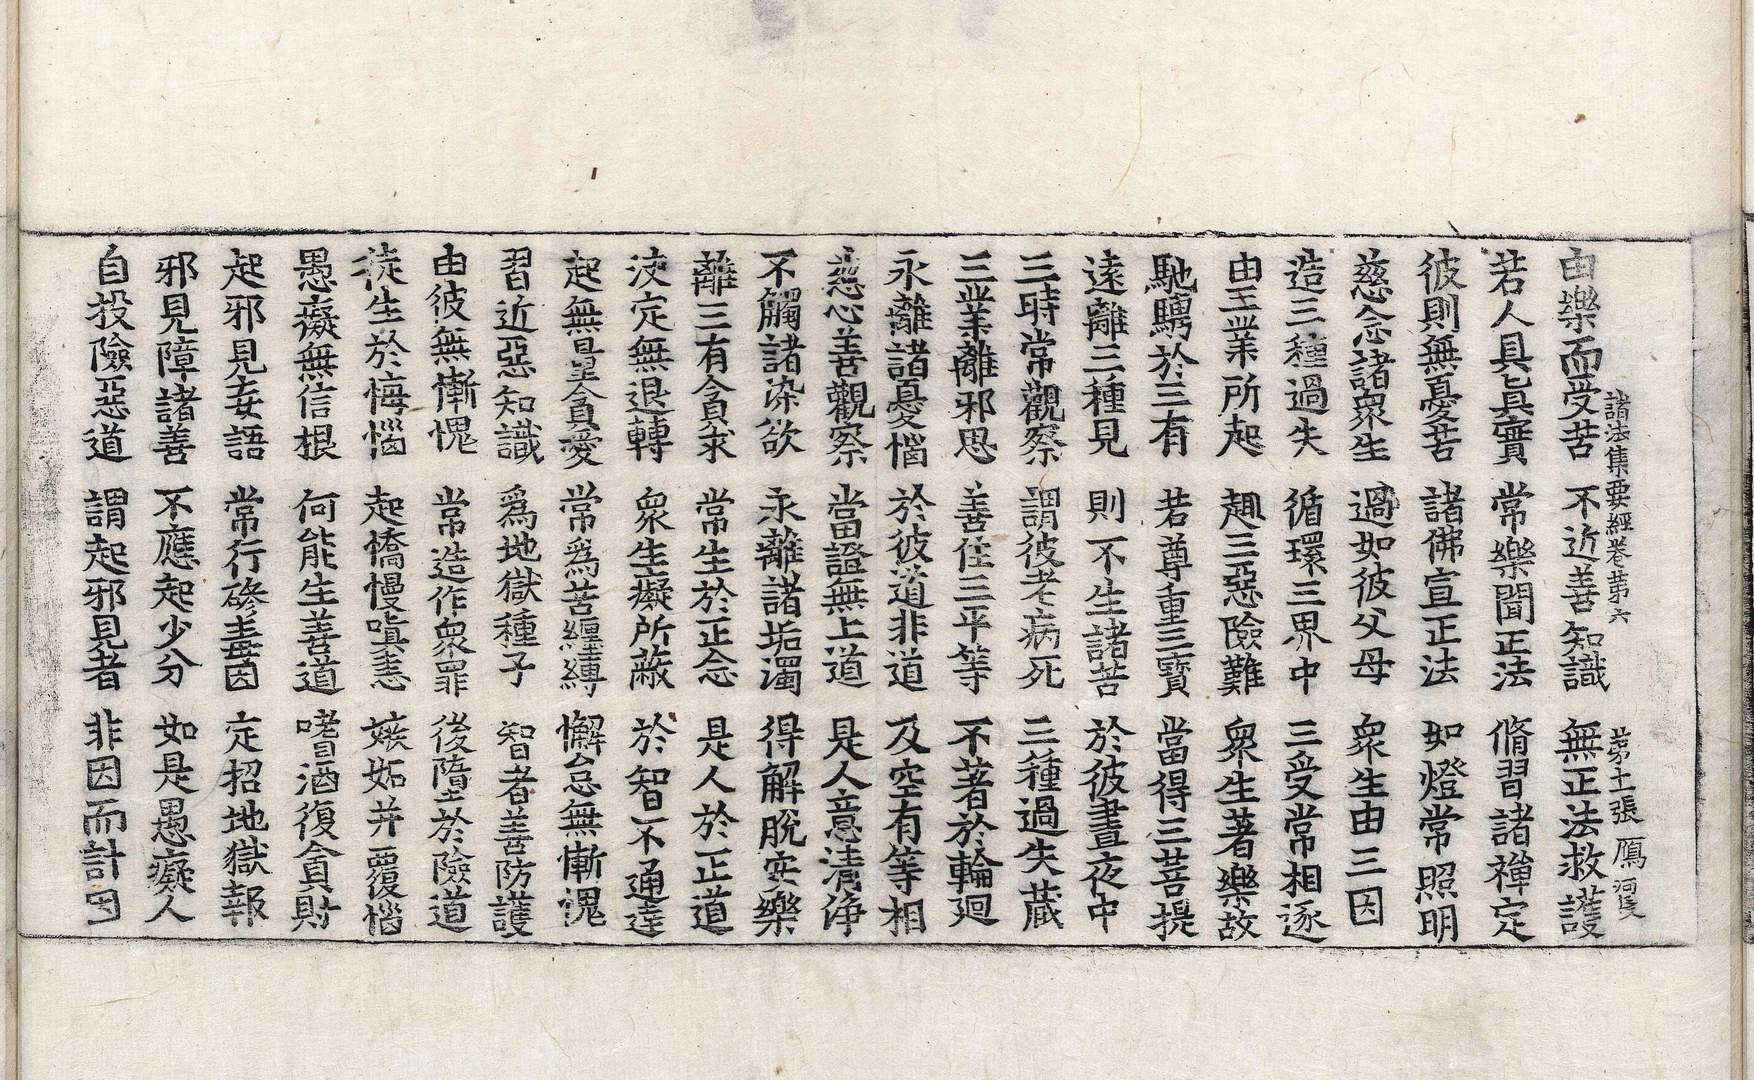 諸法集要經卷苐六 苐十二張 鴈 河隻
由樂而受苦 不近善知識 無正法救護
若人具眞實 常樂聞正法 脩習諸禪定
彼則無憂苦 諸佛宣正法 如燈常照明
慈念諸衆生 過如彼父母 衆生由三因
造三種過失 循環三界中 三受常相逐
由三業所起 趣三惡險難 衆生著樂故
馳騁於三有 若尊重三寶 當得三菩提
遠離三種見 則不生諸苦 於彼晝夜中
三時常觀察 謂彼老病死 三種過失蔵
三業離邪思 善住三平等 不著於輪廻
永離諸憂惱 於彼道非道 及空有等相
慈心善觀察 當證無上道 是人意清浄
不觸諸染欲 永離諸垢濁 得解脫安樂
離三有貪求 常生於正念 是人於正道
决定無退轉 衆生癡所蔽 於智不通達
起無量貪愛 常爲苦纏縛 懈怠無慚愧
習近惡知識 爲地獄種子 智者善防護
由彼無慚愧 常造作衆罪 後墮於險道
徒生於悔惱 起憍慢嗔恚 嫉妬并覆惱
愚癡無信根 何能生善道 嗜酒復貪財
起邪見妄語 常行磣毒因 定招地獄報
邪見障諸善 不應起少分 如是愚癡人
自投險惡道 謂起邪見者 非因而計因